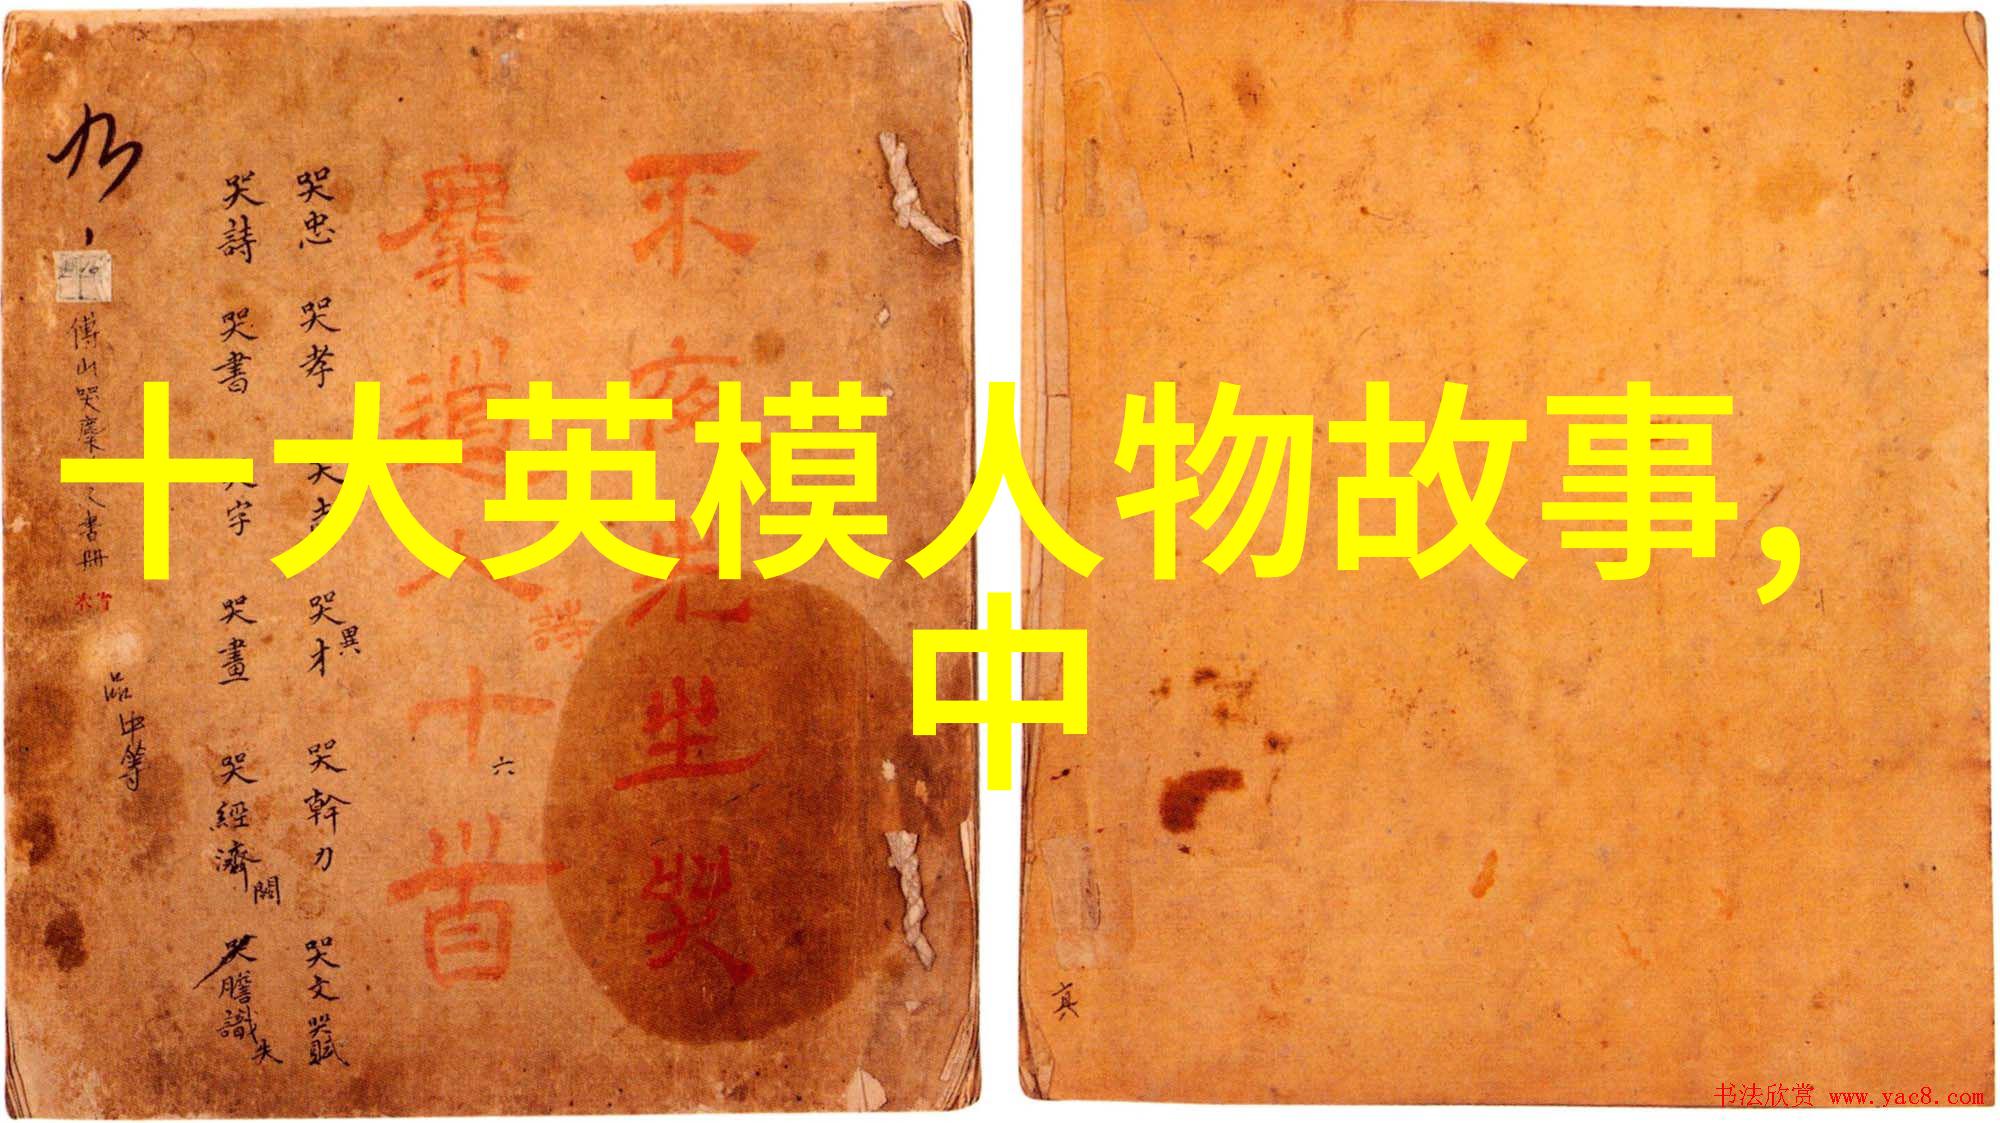 十大英模人物故事,
中
不夜光坐哭
麋道人十首
詩
六
哭忠 哭孝
哭才異 哭幹力 哭文 哭賦
哭詩 哭書
字 哭畫 哭經濟 闕 哭膽識 失
傅山哭麋
書冊
品中等
真
书法欣赏 www.yac8.com